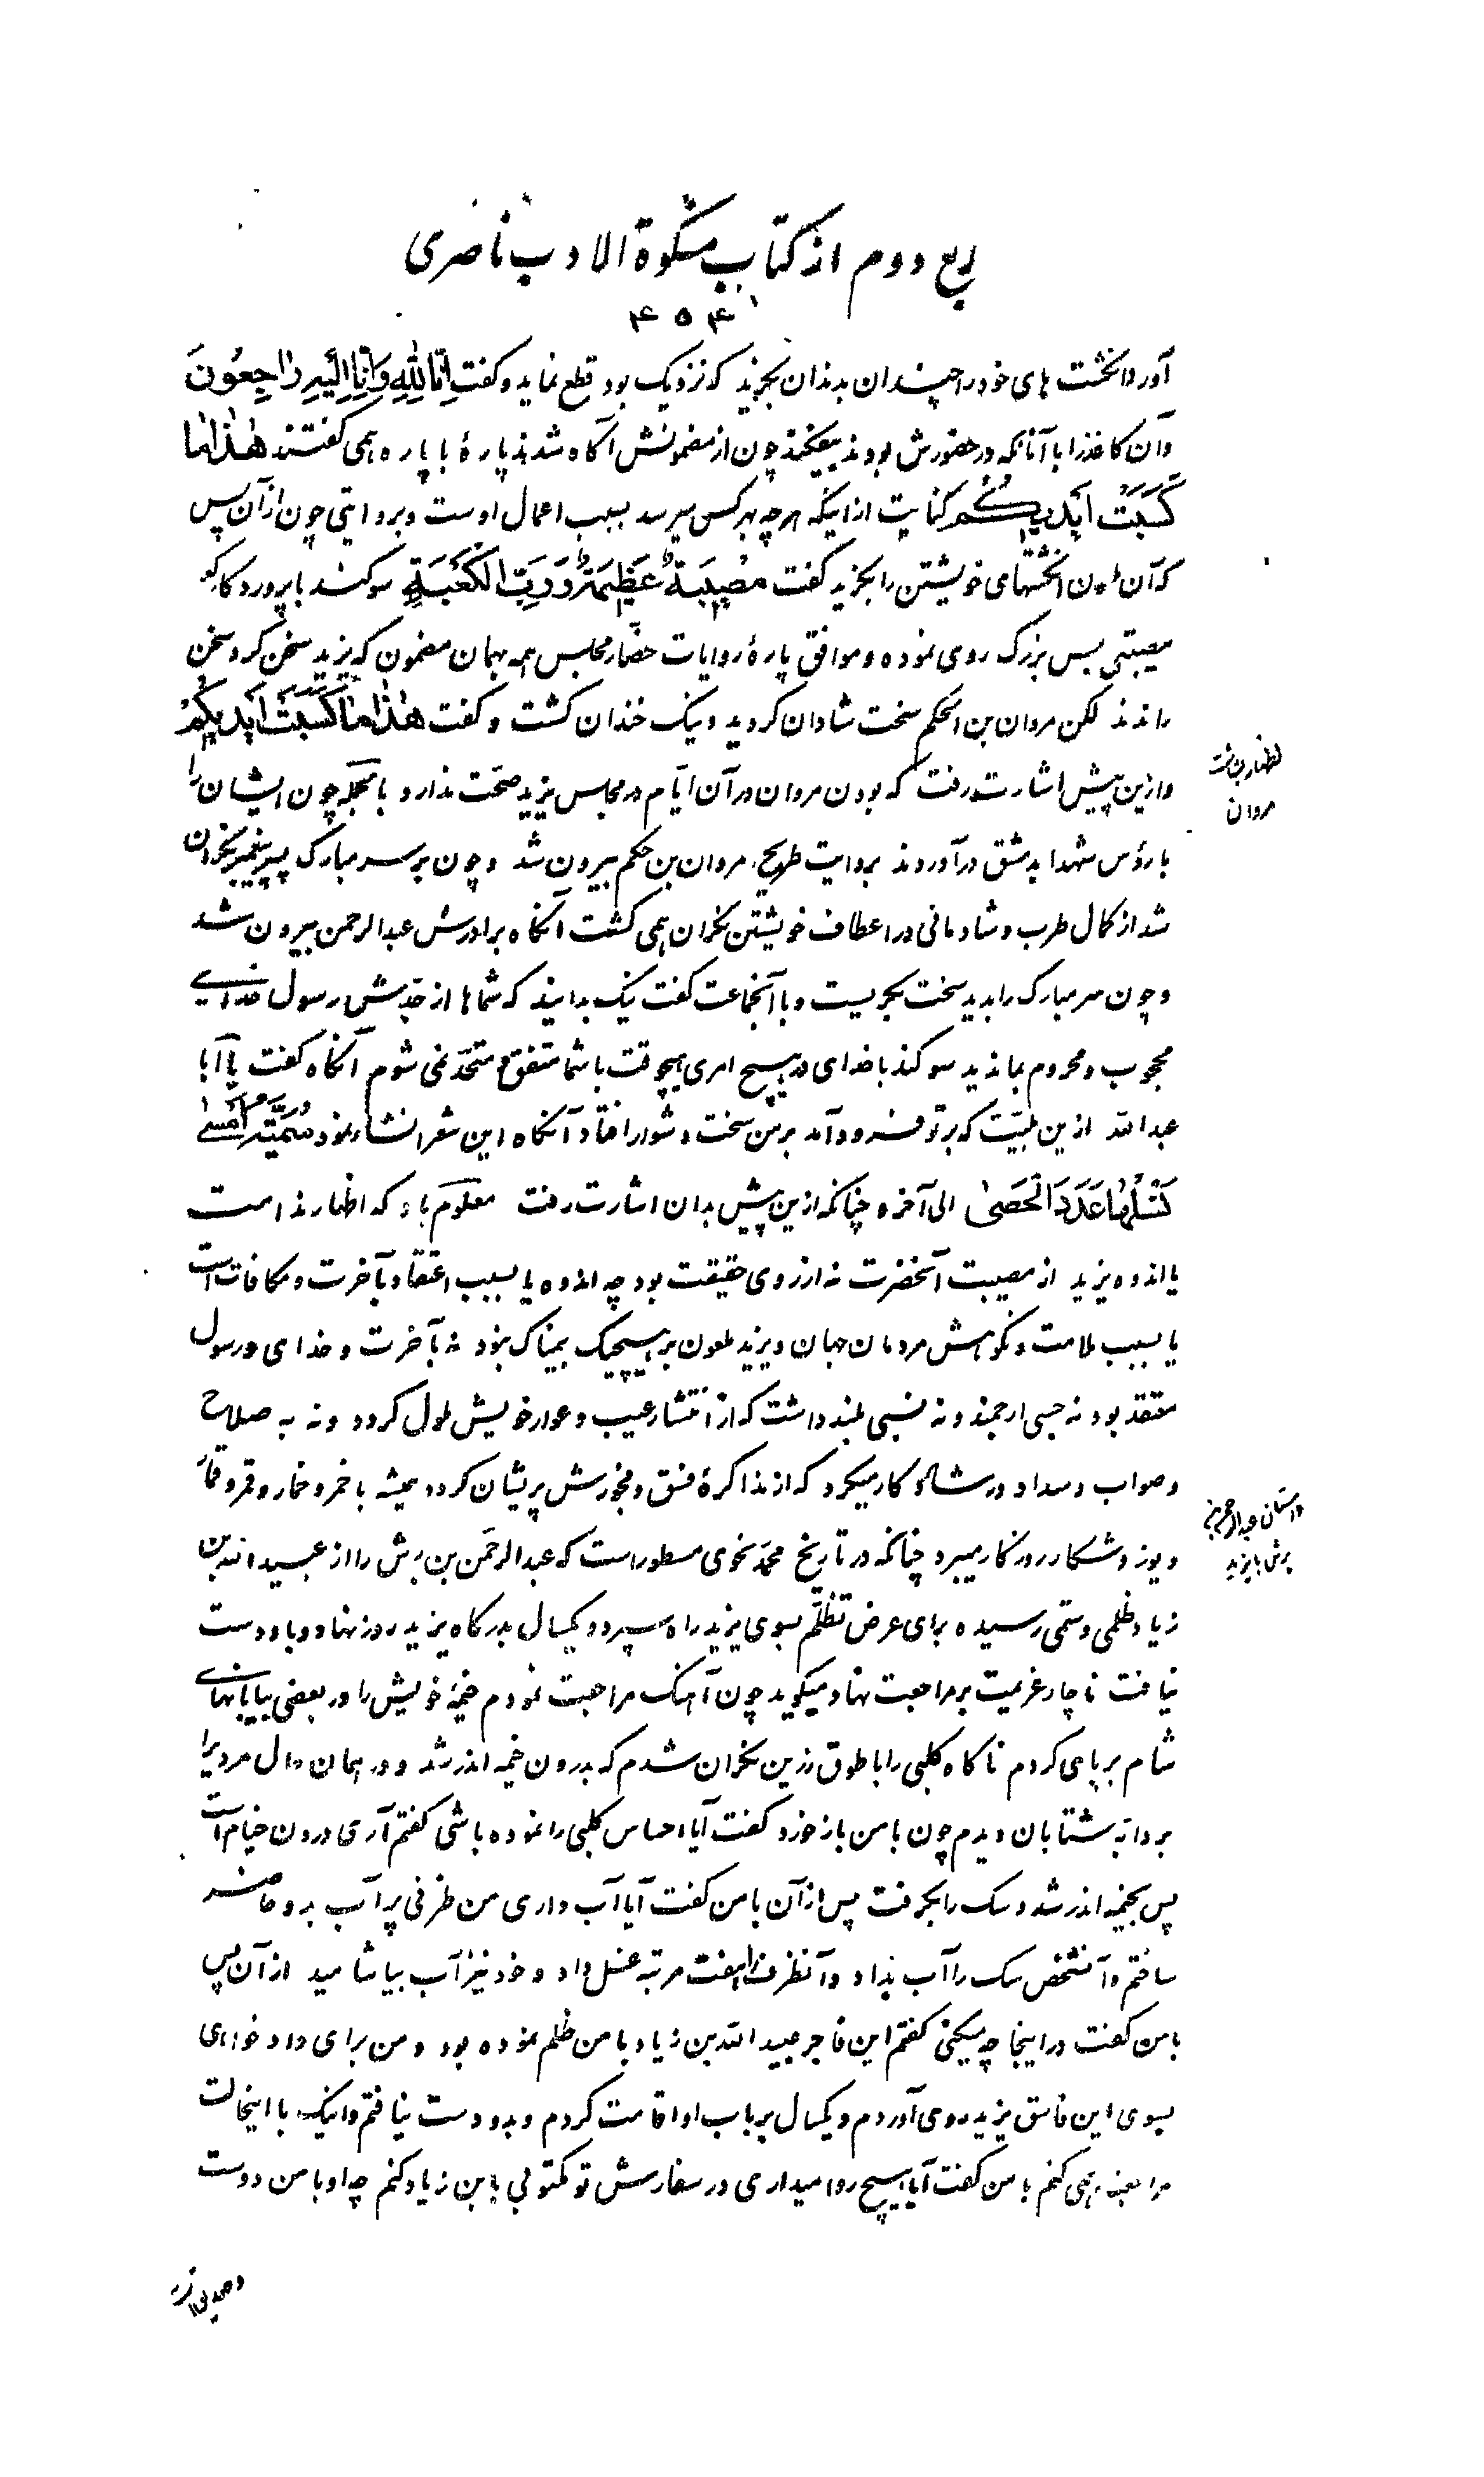 ربع دوم از کتاب مشکوة الادب ناصری
۴۵۴
آورد انگشت های خود را چندان بدندان بگزید که نزدیک بود قطع نماید و گفت اِنّا لِلّهِ وَاِنّا اِلَیهِ راجِعُونَ
وآن کاغذ را با آنانکه در حضورش بودند بیفکند چون از مضمونش آگاه شدند پارهٔ با پاره همی گفتند هٰذا ما
کَسَبَت اَیدیکُم کنایت از اینکه هر چه بهر کس میرسد بسبب اعمال اوست و بروایتی چون از آن پس
که آن لعین انگشتهای خویشتن را بگزید گفت مُصِیبَةٌ عَظِیمَةٌ وَرَبِّ الکَعبَةِ سوگند با پروردگار که
مصیبتی بس بزرگ روی نموده و موافق پارهٔ روایات حضّار مجلس همه بهمان مضمون که یزید سخن کرد سخن
راندند لکن مروان بن الحکم سخت شادان گردید و نیک خندان گشت و گفت هٰذا ما کَسَبَت اَیدیکُم
وازین پیش اشارت رفت که بودن مروان در آن ایّام در مجلس یزید صحّت ندارد بالجمله چون ایشان را
اظهار بشاشت
مروان
با رؤس شهدا بدمشق درآوردند بروایت طریحی مروان بن حکم بیرون شد و چون بر سر مبارک پسر پیغمبر نگران
شد از کمال طرب و شادمانی در اعطاف خویشتن نگران همی گشت آنگاه برادرش عبدالرحمن بیرون شد
و چون سر مبارک را بدید سخت بگریست و با آنجماعت گفت نیک بدانید که شماها از جدّش رسول خدای
محجوب و محروم بماندید سوگند با خدای در هیچ امری هیچوقت با شما متفق و متحد نمی شوم آنگاه گفت یا ابا
عبدالله ازین بلیّت که بر تو فرود آمد بر من سخت دشوار افتاد آنگاه این شعر انشاد نمود سُمَیَّة اَمسٰی
نَسلُها عَدَدَ الحَصیٰ الی آخره چنانکه ازین پیش بدان اشارت رفت معلوم باد که اظهار ندامت
یا اندوه یزید از مصیبت آنحضرت نه از روی حقیقت بود چه اندوه یا بسبب اعتقاد بآخرت و مکافات است
یا بسبب ملامت و نکوهش مردمان جهان و یزید ملعون بر هیچیک بیمناک نبود نه بآخرت و خدای و رسول
معتقد بود نه حسبی ارجمند و نه نسبی بلند داشت که از انتشار عیب و عوار خویش ملول گردد و نه به صلاح
و صواب و سداد و رشاد کار میکرد که از مذاکرهٔ فسق و فجورش پریشان گردد همیشه با خمر و خمار و قمر و قمار
و یوز و شکار روزگار میبرد چنانکه در تاریخ محمّد نحوی مسطور است که عبدالرحمن بن برش را از عبیدالله بن
داستان عبدالرحمن بن
برش با یزید
زیاد ظلمی و ستمی رسیده برای عرض تظلّم بسوی یزید راه سپرد و یکسال بدرگاه یزید روز نهاد و باو دست
نیافت ناچار عزیمت بر مراجعت نهاد میگوید چون آهنگ مراجعت نمودم خیمهٔ خویش را در بعضی بیابانهای
شام بر پای کردم ناگاه کلبی را با طوق زرین نگران شدم که بدرون خیمه اندر شد و در همان حال مردی را
بر دابه شتابان دیدم چون با من باز خورد گفت آیا احساس کلبی را نموده باشی گفتم آری درون خیام است
پس بخیمه اندر شد و سگ را بگرفت پس از آن با من گفت آیا آب داری من ظرفی پر آب بدو حاضر
ساختم و آنشخص سگ را آب بداد و آنظرف را هفت مرتبه غسل داد و خود نیز آب بیاشامید از آن پس
با من گفت در اینجا چه میکنی گفتم این فاجر عبیدالله بن زیاد با من ظلم نموده بود و من برای دادخواهی
بسوی این فاسق یزید روی آوردم و یکسال بر باب او اقامت کردم و بدو دست نیافتم و اینک با اینحالت
مراجعه همی کنم با من گفت آیا هیچ روا میداری در سفارش تو مکتوبی بابن زیاد کنم چه او با من دوست